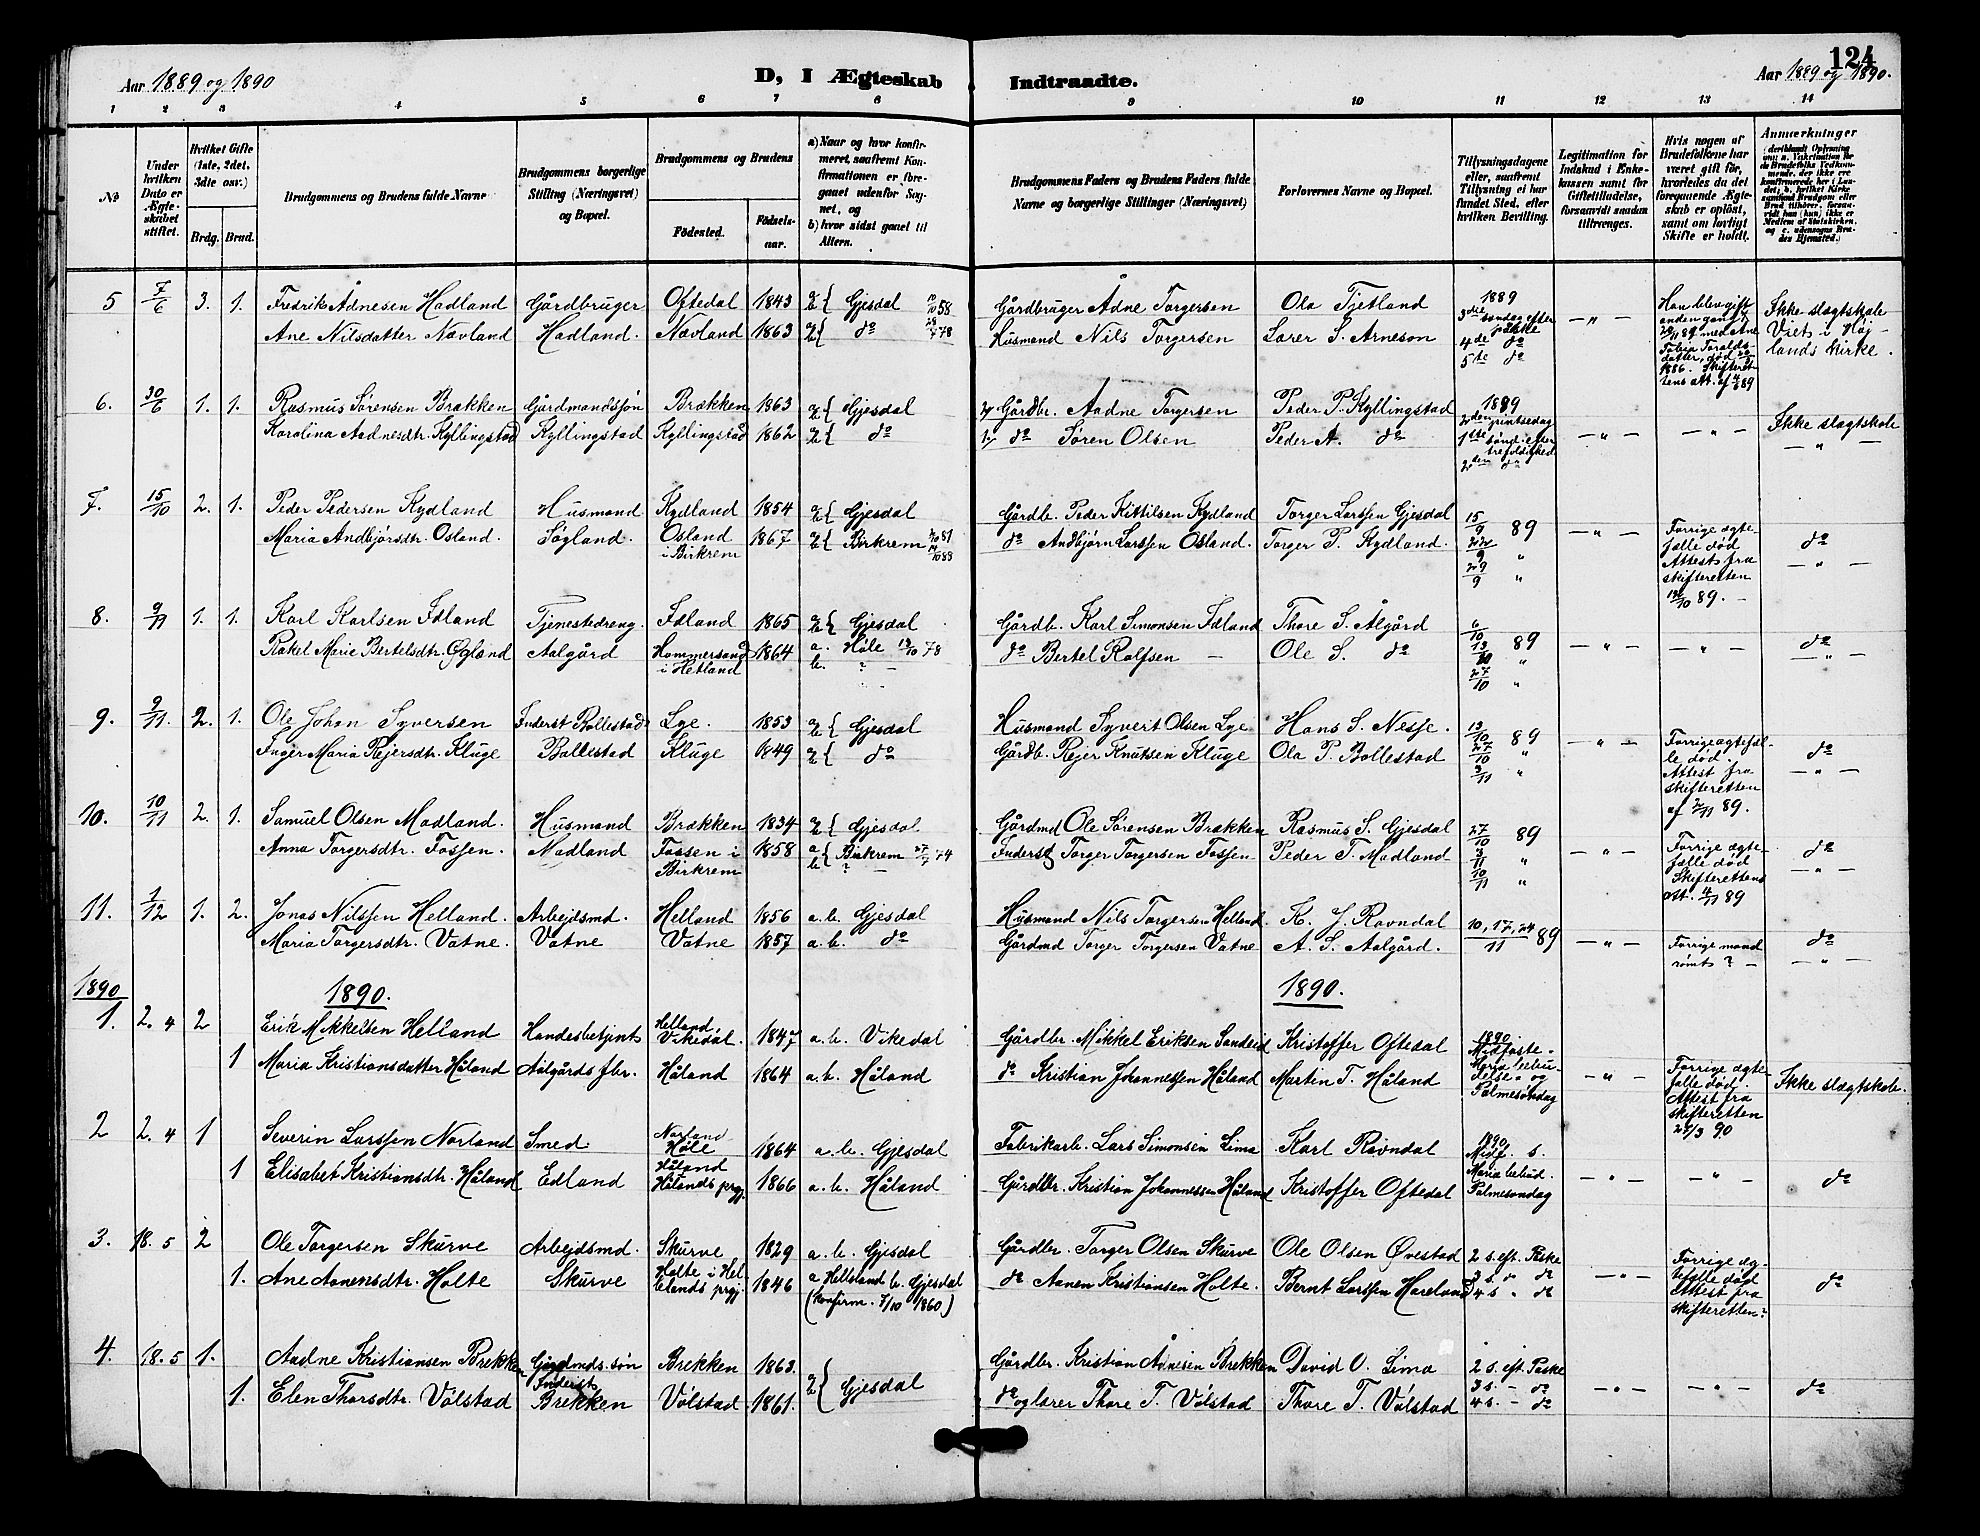 124
Aar 1889 og 1890
D, I Ægteskab Indtraadte.
Aar 1889 og 1890.
1 2 3 4 5 6 7 8 9 10 11 12 13 14
№
Under hvilken Dato er Ægteskabet stiftet.
Hvilket Gifte (1ste, 2det, 3die osv.)
Brdg. Brud.
Brudgommens og Brudens fulde Navne
Brudgommens borgerlige Stilling (Næringsvei) og Bopæl.
Brudgommens og Brudens
Fødested.
Fødselsaar.
a) Naar og hvor konfirmeret, saafremt Konfirmationen er foregaaet udenfor Sognet, og
b) hvor sidst gaaet til Alters.
Brudgommens Faders og Brudens Faders fulde Navne og borgerlige Stillinger (Næringsvei)
Forlovernes Navne og Bopæl.
Tillysningsdagene eller, saafremt Tillysning ei har fundet Sted, efter hvilken Bevilling.
Legitimation for Indskud i Enkekassen samt for Giftetilladelse, forsaavidt saadan tiltrænges.
Hvis nogen af Brudefolkene har været gift før, hvorledes da det foregaaende Ægteskab er opløst, samt om lovligt Skifte er holdt.
Anmærkninger
5 7/6 3. 1. Fredrik Ådnesen Hadland Gårdbruger Oftedal 1843 Gjesdal Gårdbruger Ådne Torgersen Ola Tjetland 1889 Ikke slægtskab
Ane Nilsdatter Navland Hadland. Navland 1863 do Husmand Nils Torgersen Lærer S. Arneson 4de do 5te do Viet i Højlands kirke.
6. 30/6 1. 1. Rasmus Sørensen Brækken Gårdmandssøn Brækken 1863 Gjesdal Gårdbr. Aadne Torgersen Peder P. Kyllingstad 1889 2den pintsedag Ikke slægtskab
Karolina Aadnesdtr. Kyllingstad Kyllingstad Kyllingstad 1862 do do Søren Olsen Peder A. do 1ste sönd. efter trefoldighed 2den do
7. 15/10 2. 1. Peder Pedersen Kydland Husmand Kydland 1854 Gjesdal Gårdb. Peder Kittilsen Kydland Torger Larssen Gjesdal 15/9 89
Maria Andbjörsdtr. Osland. Søgland. Osland i Birkrem 1867 Birkrem do Andbjørn Larssen Osland. Torger P. Kydland. 22/9 " 29/9 " Forrige ægtefælle død Attest fra skifteretten do
8. 9/11 1. 1. Karl Karlsen Edland Tjenestedreng. Edland 1865 Gjesdal Gårdb. Karl Simonsen Edland Thore S. Ålgård 6/10
Rakel Marie Bertelsdtr. Ogland Aalgård Hommersand i Hetland 1864 a. Høle 13/10 78 b. ? do Bertel Rolfsen Ole S. do 13/10 89 27/10 " do
9. 9/11. 2. 1. Ole Johan Syversen Inderst Bollestad Lye. 1853 Gjesdal Husmand Syvert Olsen Lye Hans S. Nesse. 13/10 89
Inger Maria Rejersdtr. Kluge Bollestad Kluge 1849 do Gårdb. Rejer Knutsen Kluge Ola P. Bollestad 27/10 " 3/11 " Forrige ægtefælle død. Attest fra skifteretten af 2/11 89. do
10. 10/11 2. 1. Samuel Olsen Madland. Husmand Brækken 1834 Gjesdal Gårdmd Ole Sørensen Brækken Rasmus S. Gjesdal 27/10 89
Anna Torgersdtr. Fossen. Madland Fossen i Birkrem 1858 a b Birkrem ? Inderst Torger Torgersen Fossen Peder T. Madland 3/11 " 10/11 " Forrige ægtefælle død Skifterettens att. 4/11 89 do
11. 1/12 1. 2. Jonas Nilssen Helland. Arbejdsmd. Helland 1856 a. b. Gjesdal Husmand Nils Torgersen Helland. K. J. Ravndal 10, 17, 24/11 89
Maria Torgersdtr. Vatne. Vatne Vatne 1857 a. b. do Gårdmd Torger Torgersen Vatne A. S. Aalgård. Forrige mand rømt? do
1890 1890. 1890.
1. 2. 4 2 Erik Mikkelsen Helland Handesbetjent Helland Vikedal. 1847 a. b. Vikedal Gårdbr. Mikkel Eriksen Sandeid Kristoffer Oftedal 1890 Midfaste
1 Maria Kristiansdatter Håland Aalgårds fbr. Håland 1864 a. b. Håland do Kristian Johannessen Håland Martin T. Håland Maria bebudelse og Palmesøndag Forrige ægtefælle død. Attest fra skifteretten Ikke slægtskab.
2 2. 4 1 Severin Larssen Norland Smed Norland Høle 1864 a. b. Gjesdal Fabrikarb. Lars Simonsen Lima Karl Ravndal 1890 Midf. s.
1 Elisabet Kristiansdtr. Håland Edland Håland Hålands prgj. 1866 a. b. Håland Gårdbr. Kristian Johannessen Håland Kristoffer Oftedal Maria bebud. Palmesøndag do
3. 18. 5 2 Ole Torgersen Skurve Arbejdsmd. Skurve 1829 a. b. Gjesdal Gårdbr. Torger Olsen Skurve Ole Olsen Øvestad 2 s. eft. Påske
1. Ane Aanensdtr. Holte Skurve Holte i Hellelands prgj. 1846 a Helleland b. Gjesdal (Konfirm. 7/10 1860) do Aanen Kristiansen Holte. Bernt Larssen Hareland 3 s. " do 4 s. " do Forrige ægtefælle død Attest fra skifteretten? do
4. 18. 5 1. Aadne Kristiansen Brekken Gårdmds. søn Brekken 1863. Gårdbr. Kristian Ådnesen Brekken David O. Lima 2 s. eft. Paske
1. Elen Thorsdtr. Vølstad Inderst Brekken Vølstad 1861. Gjesdal do og lærer Thore T. Vølstad Thore T. Vølstad 3 s. – do 4 s. – do do